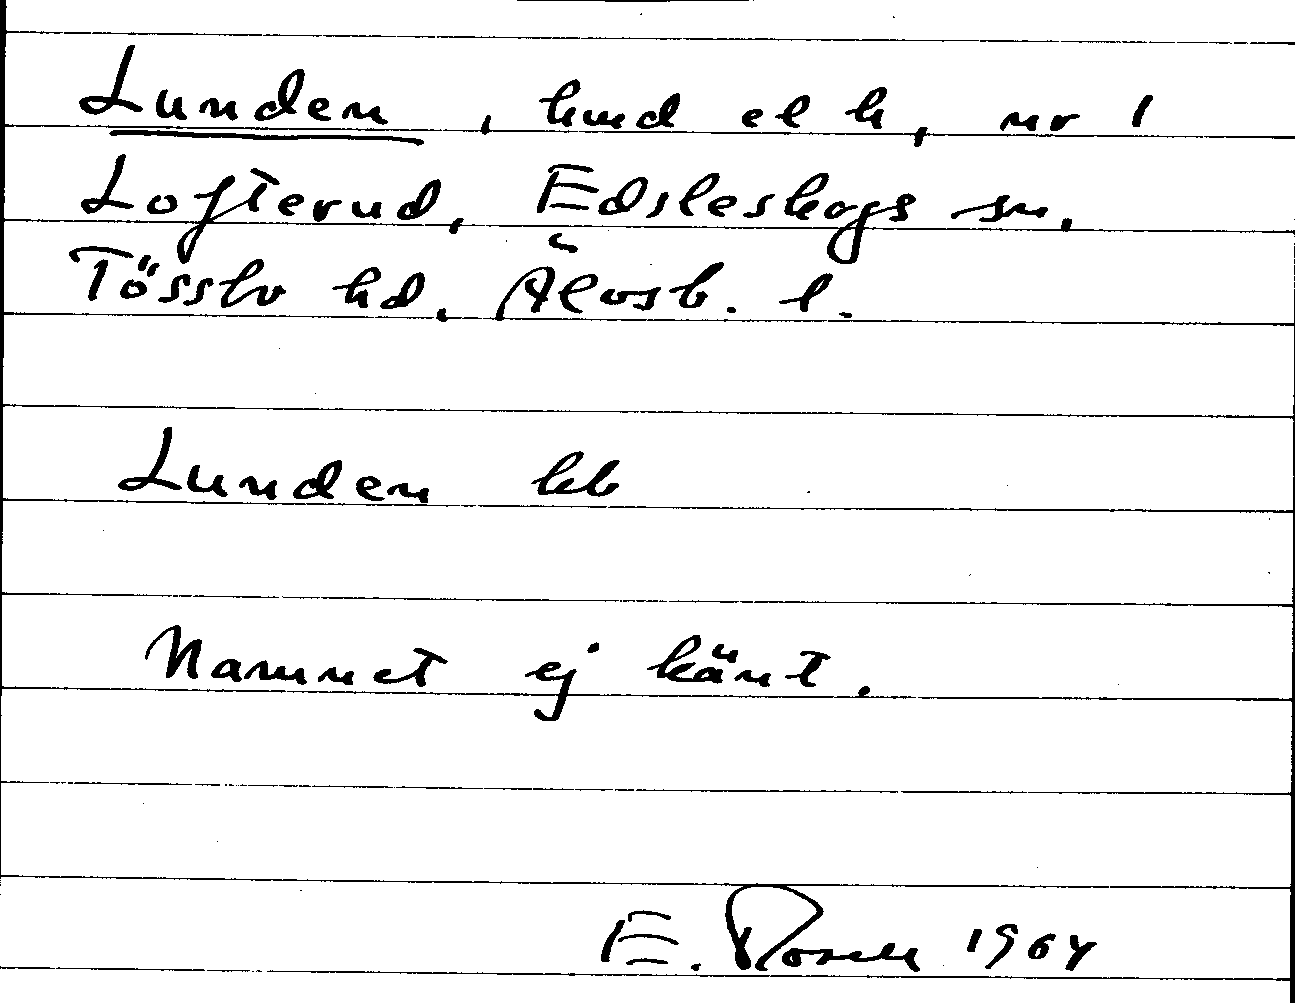 Lunden, hmd el h, nr 1
Lofterud, Edsleskogs sn.
Tössbo hd. Älvsb. l.
Lunden kb
Namnet ej känt.
E. Rosell 1964